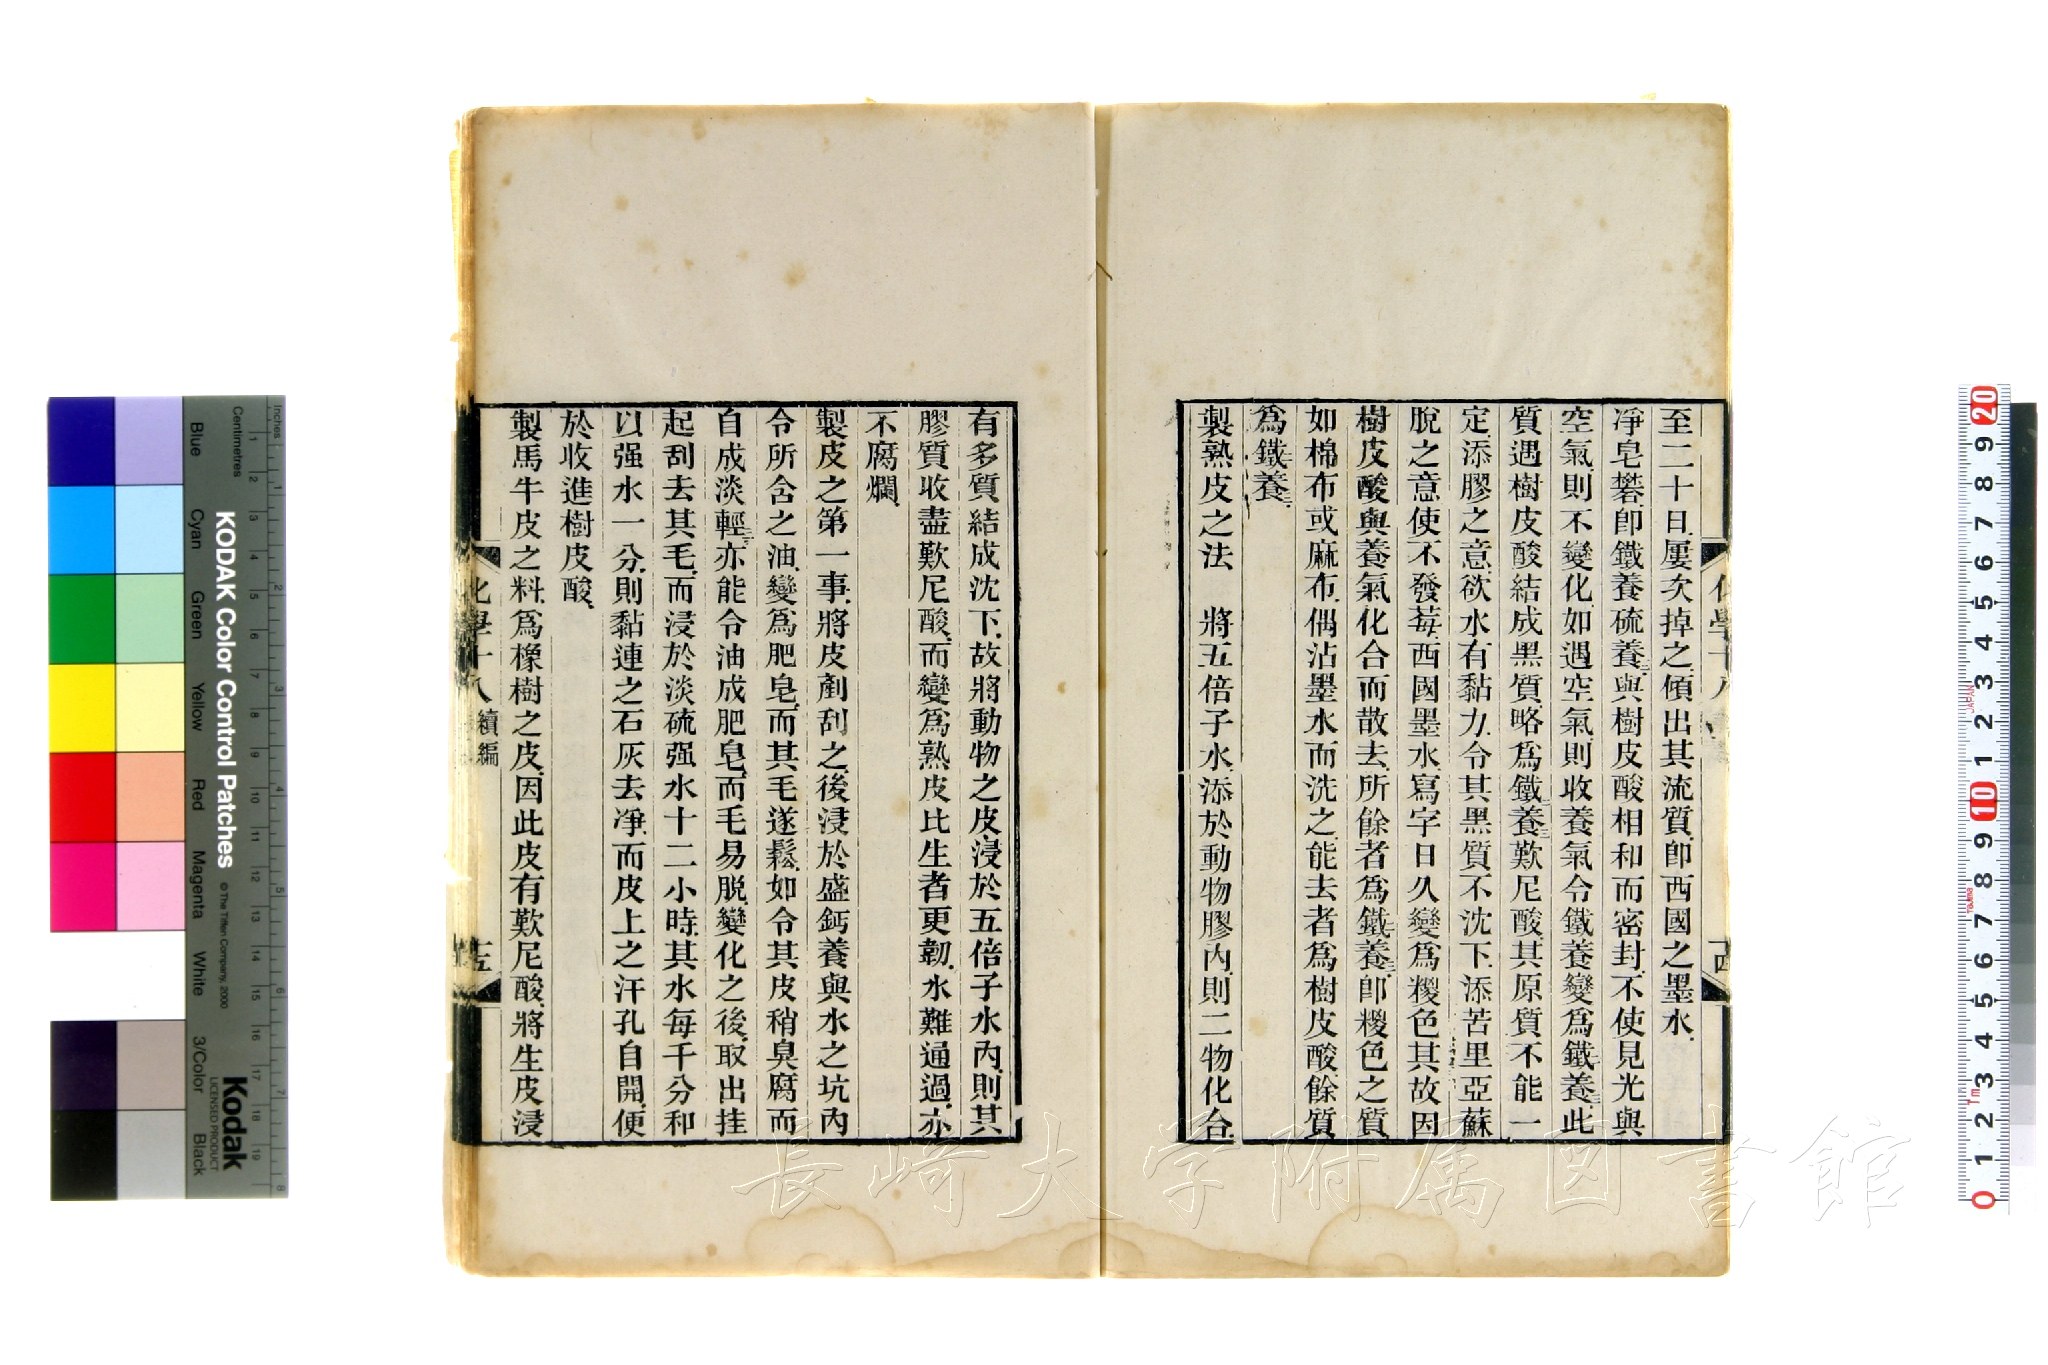 至二十日屢次掉之傾出其流質卽西國之墨水
淨皂礬卽鐵養硫養三與樹皮酸相和而密封不使見光與
空氣則不變化如遇空氣則收養氣令鐵養變爲鐵二養三此
質遇樹皮酸結成黑質略爲鐵二養三歎尼酸其原質不能一
定添膠之意欲水有黏力令其黑質不沈下添苦里亞蘇
脫之意使不發莓西國墨水寫字日久變爲糉色其故因
樹皮酸與養氣化合而散去所餘者爲鐵二養三卽糉色之質
如棉布或麻布偶沾墨水而洗之能去者爲樹皮酸餘質
爲鐵二養三
製熟皮之法 將五倍子水添於動物膠內則二物化合
有多質結成沈下故將動物之皮浸於五倍子水內則其
膠質收盡歎尼酸而變爲熟皮比生者更韌水難通過亦
不腐爛
製皮之第一事將皮劀刮之後浸於盛鈣養與水之坑內
令所含之油變爲肥皂而其毛遂鬆如令其皮稍臭腐而
自成淡輕三亦能令油成肥皂而毛易脫變化之後取出挂
起刮去其毛而浸於淡硫强水十二小時其水每千分和
以强水一分則黏連之石灰去淨而皮上之汗孔自開便
於收進樹皮酸
製馬牛皮之料爲橡樹之皮因此皮有歎尼酸將生皮浸
化學十八 續編
十五
長崎大学附属図書館
KODAK Color Control Patches
© The Tiffen Company, 2000
Kodak
LICENSED PRODUCT
Inches
Centimetres
Blue
Cyan
Green
Yellow
Red
Magenta
White
3/Color
Black